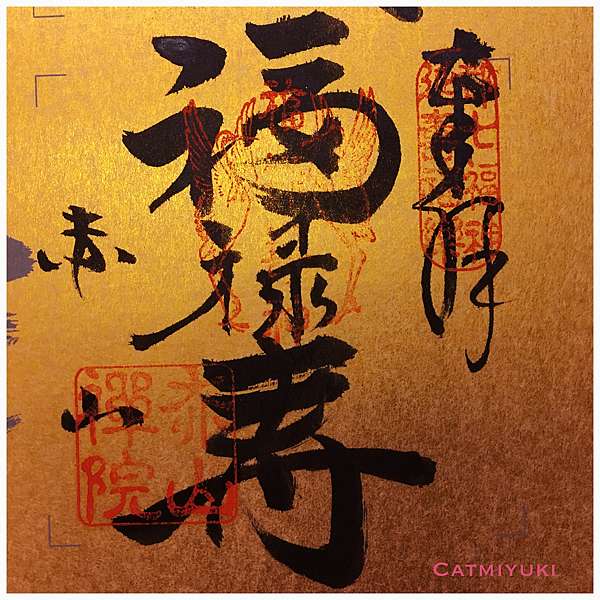 奉拝
福禄寿
赤山
赤山
禪院
CATMIYUKI